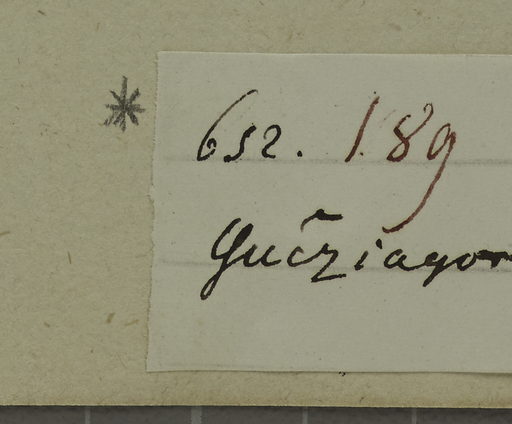 * 652. 189
Gučziagor